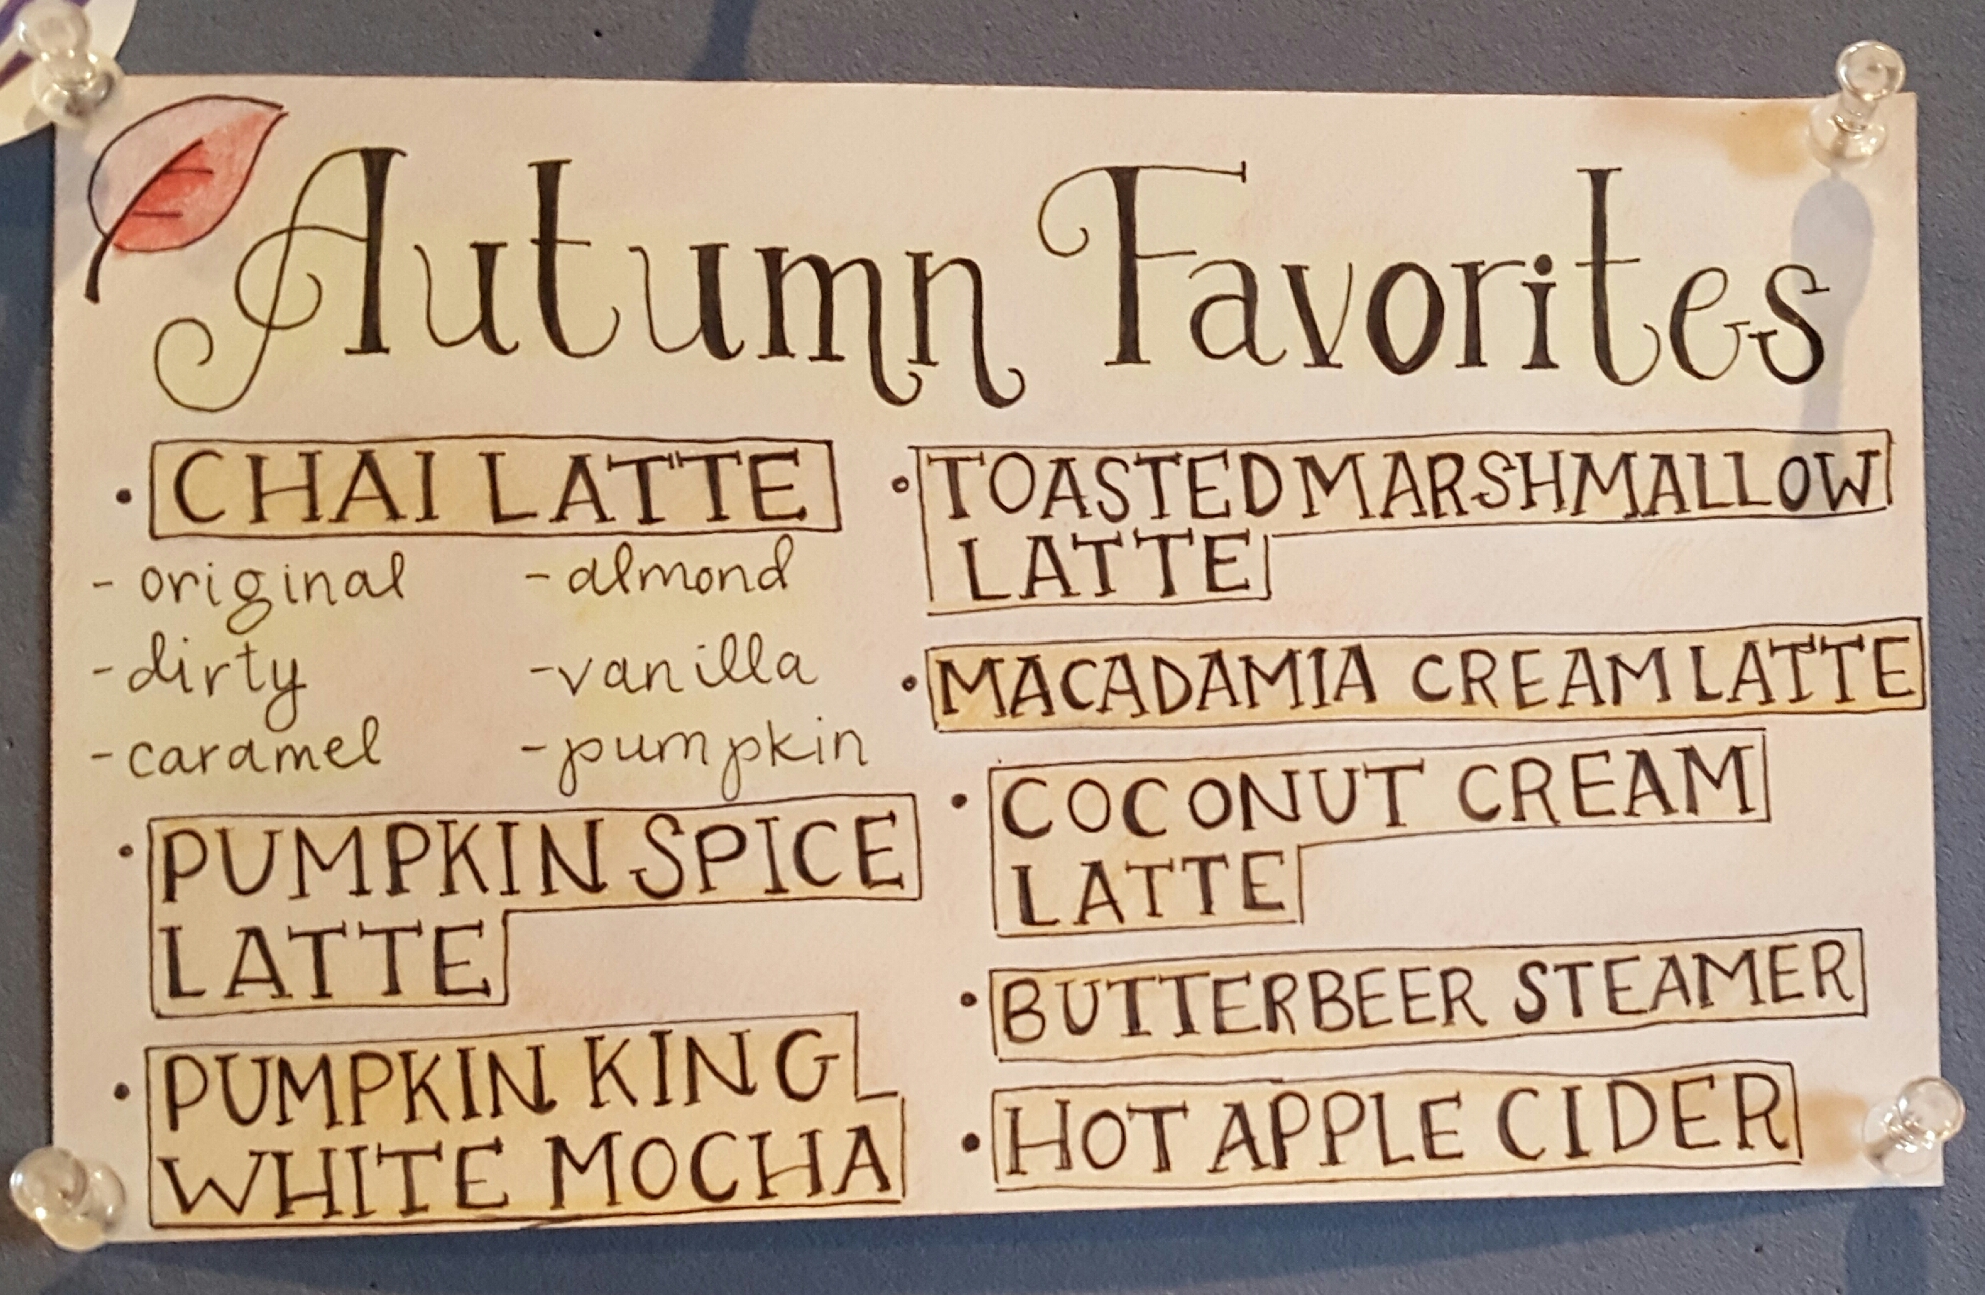 Autumn Favorites
• CHAI LATTE
- original
- dirty
- caramel
- almond
- vanilla
- pumpkin
• PUMPKIN SPICE
LATTE
• PUMPKIN KING
WHITE MOCHA
• TOASTED MARSHMALLOW
LATTE
• MACADAMIA CREAM LATTE
• COCONUT CREAM
LATTE
• BUTTERBEER STEAMER
• HOT APPLE CIDER